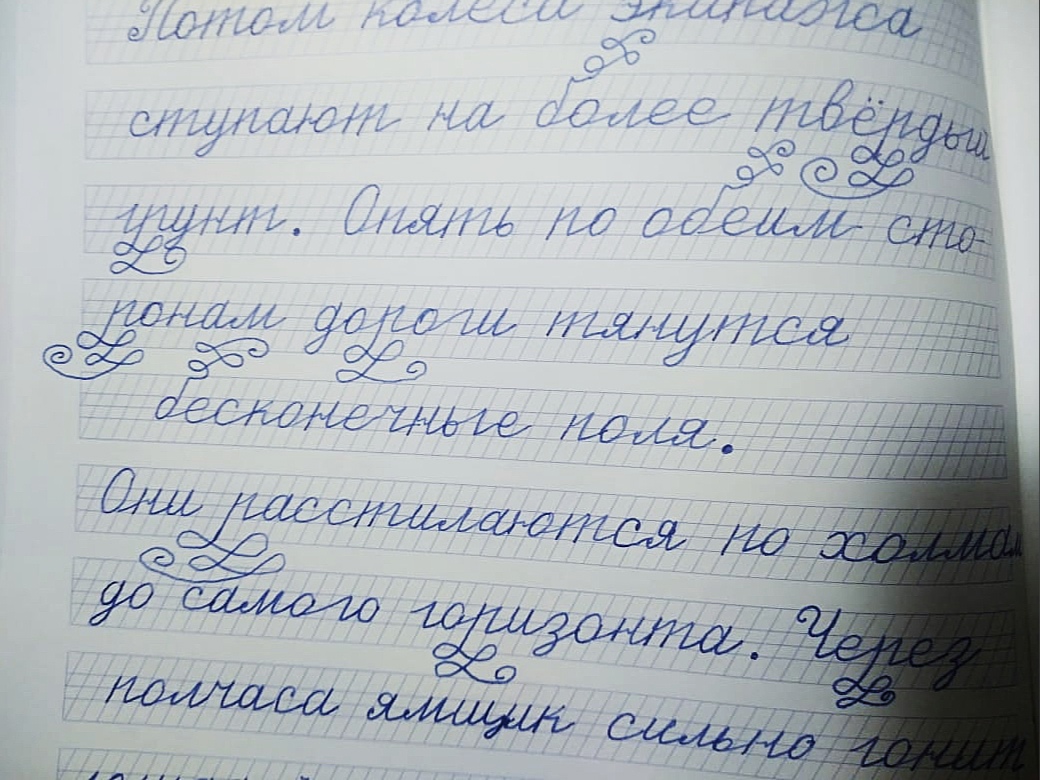 Потом колёса экипажа
ступают на более твёрдый
грунт. Опять по обеим сто-
ронам дороги тянутся
бесконечные поля.
Они расстилаются по холмам
до самого горизонта. Через
полчаса ямщик сильно гонит